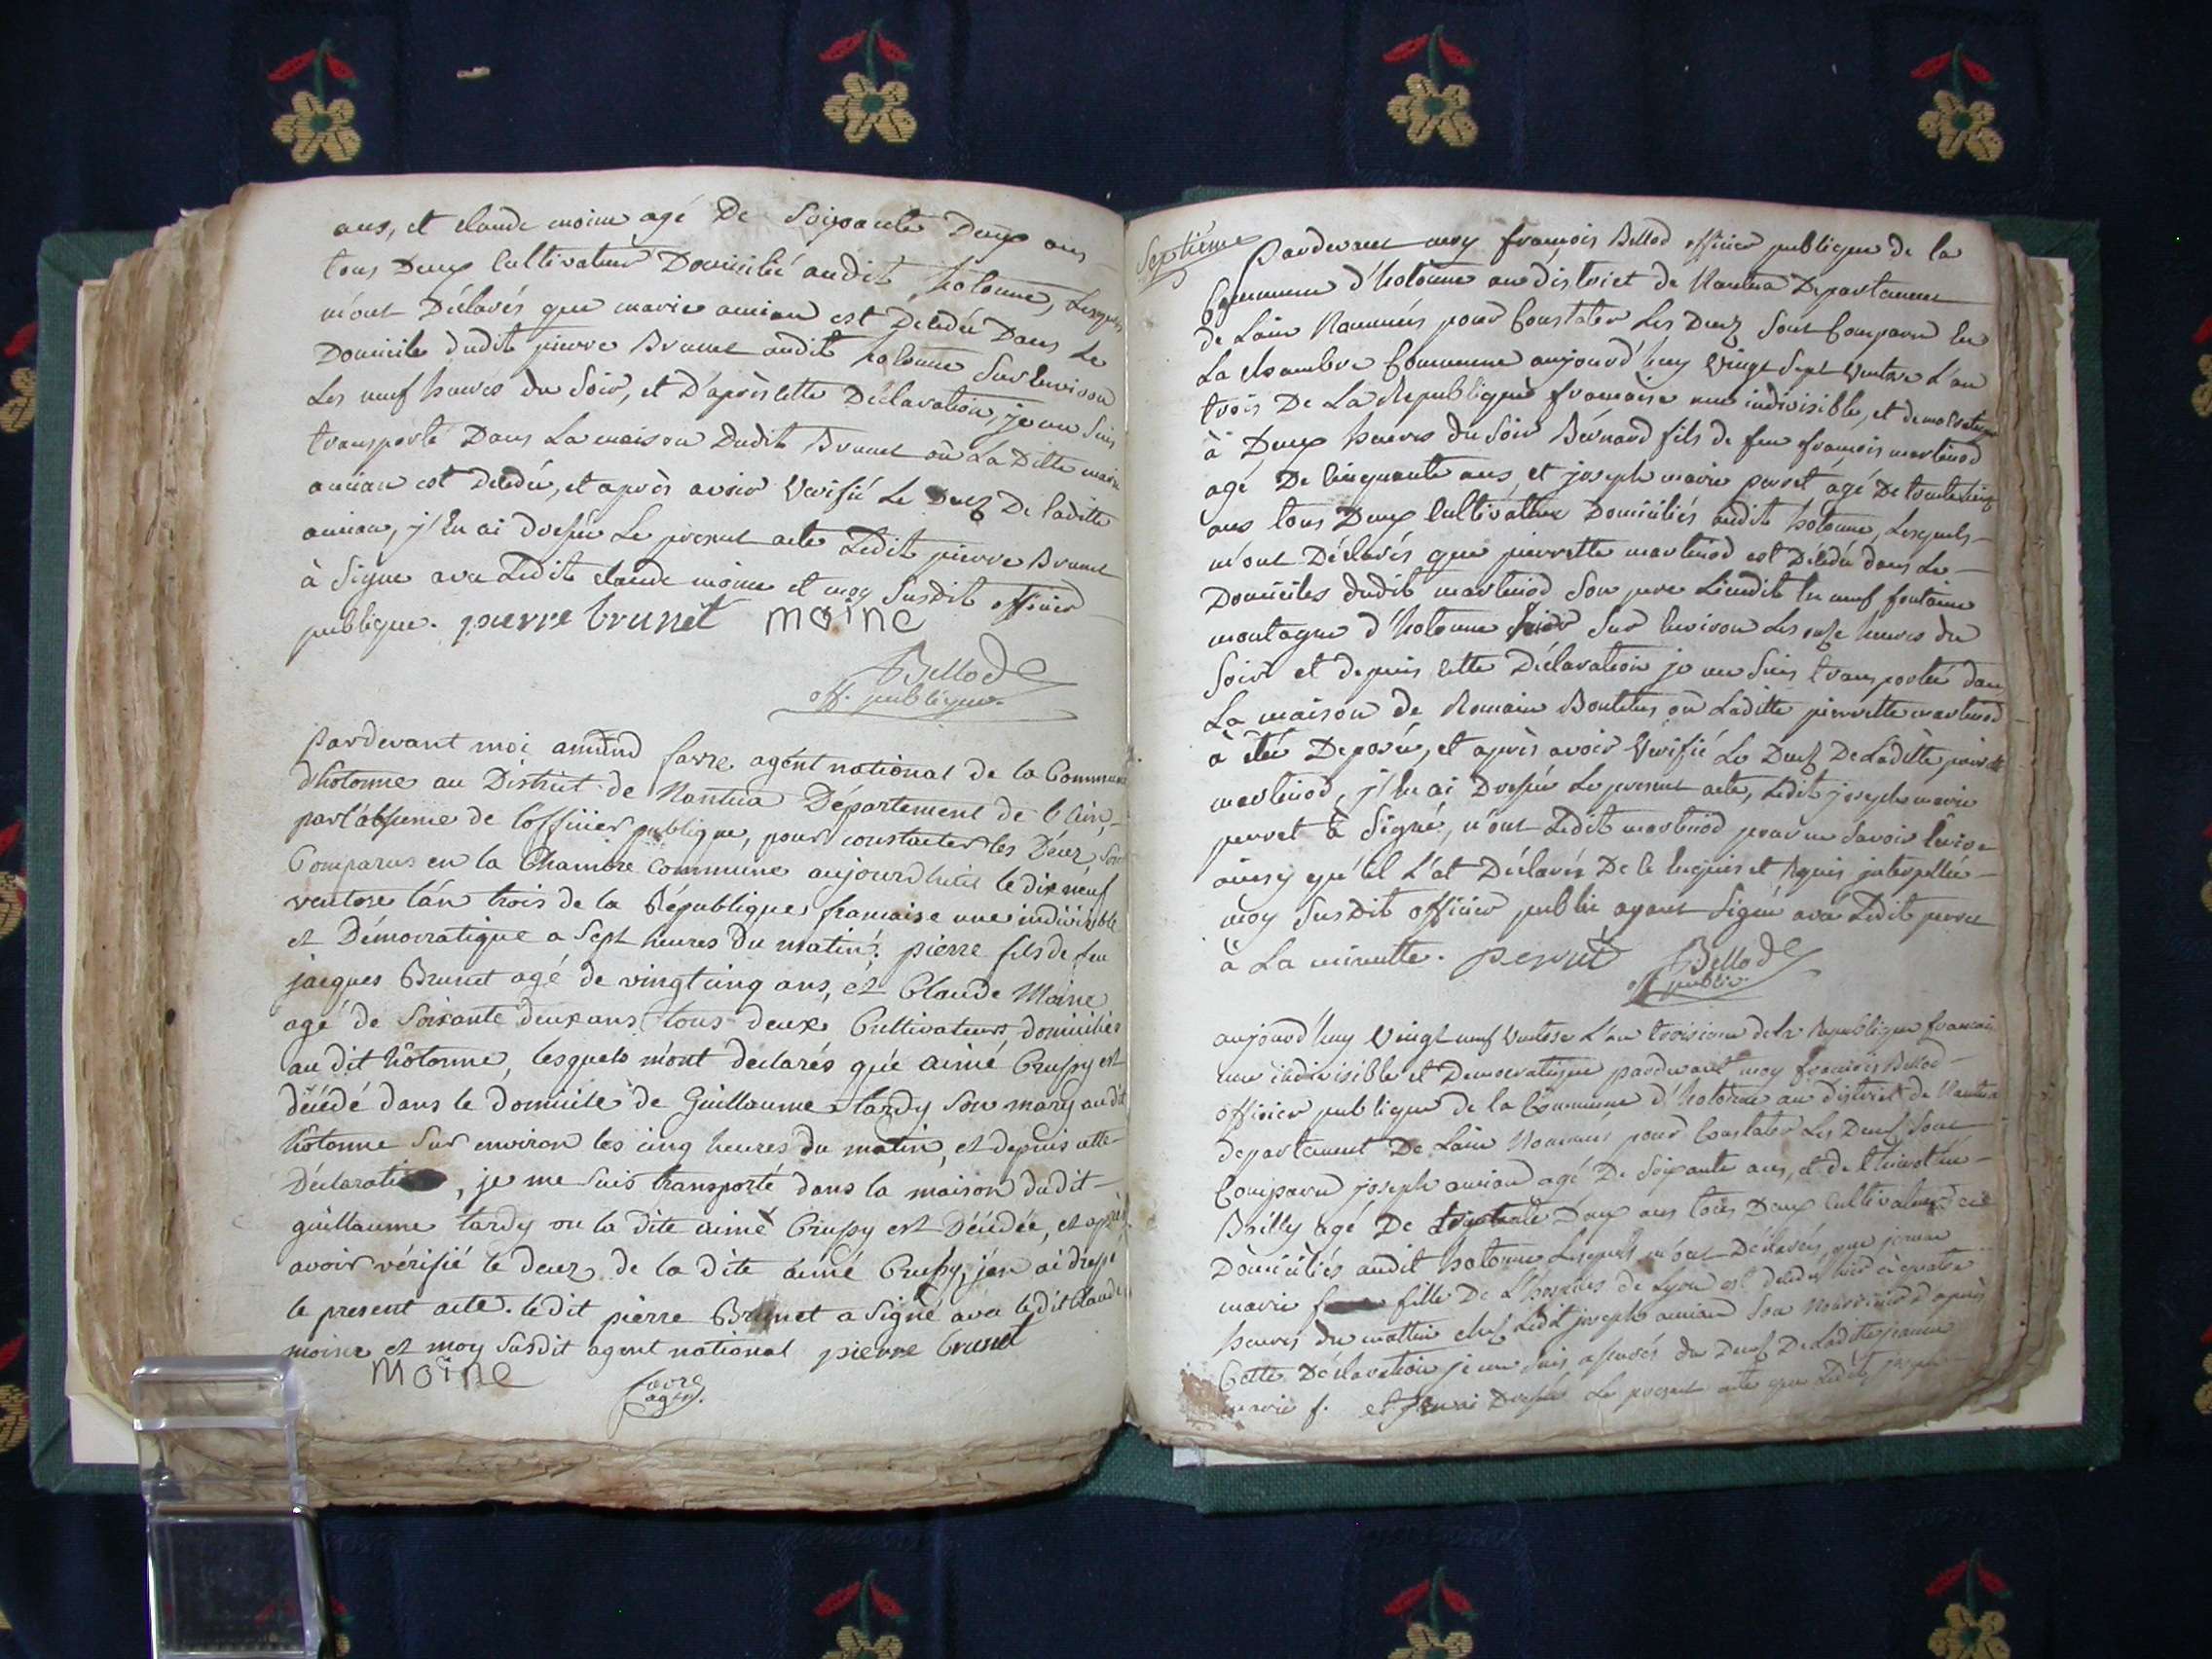 ans, et claude moine agé De Soixante Deux ans
tous Deux Cultivateurs Domicilié audit hotonne, Lesquels
m'ont Déclarés que marie amian est Décédée Dans Le
Domicile dudit pierre Brunet audit hotonne Sur Environ
Les neuf heures du Soir, et D'après cette Déclaration, je me Suis
transporté Dans La maison Dudit Brunet où La Ditte marie
amian est Décédée, et après avoir Verifié Le Decez De Laditte
amian, j'En ai dressée Le present acte Ledit pierre Brunet
à Signe avec Ledit claude moine et moy Susdit officier
publique. pierre brunet moine
Bellod
off. publique.
pardevant moi amand favre agént national de la Commune
d'hotonne au District de Nantua Département de l'ain,
par l'absence de l'officier publique, pour constater les Décez, Sont
Comparus en la Chambre commune aujourd'huit le dix neuf
ventose l'an trois de la République francaise une indivisible
et Démocratique a Sept heures du matin. pierre fils de feu
jacques Brunet agé de vingt cinq ans, et Claude Moine
agé de Soixante deux ans, tous deux Cultivateurs domiciliés
au dit hotonne, lesquels m'ont declarés que aimé Crussy est
décédé dans le domicile de Guillaume tardy Son mary audit
hotonne Sur environ les cinq heures du matin, et depuis cette
Déclaration, je me Suis transporté dans la maison dudit
guillaume tardy ou la dite aimé Crussy est Décédée, et après
avoir vérifié le decez de la dite aimé Crussy, j'en ai dressé
le present acte. ledit pierre Brunet a Signé avec le dit Claude
moine et moy Susdit agent national pierre brunet
moine
favre
agent.
Septième
Pardevant moy françois Bellod officier publique de la
Commune d'hotonne au district de Nantua Departement
de Lain Nommés pour Constater Les Decez Sont Comparu En
La chambre Commune aujourd'huy Vingt Sept Ventose L'an
trois De La Republique françoise une indivisible, et democratique
à Deux heures du Soir Bernard fils de feu françois martinod
agé De Cinquante ans, et joseph marie perret agé De trente cinq
ans tous Deux Cultivateur Domiciliés audit hotonne, Lesquels
m'ont Déclarés que pierrette martinod est Décédée dans Le
Domicile dudit martinod Son pere Lieudit En neuf fontaine
montagne d'hotonne hier Sur Environ Les onze heures du
Soir et depuis cette Déclaration je me Suis transportée dans
La maison de Romain où Laditte pierrette martinod
à été Deposée, et après avoir Verifié Le Decez De Laditte pierrette
martinod, j'En ai Dressée Le present acte, Ledit joseph marie
perret à Signé, n'ont Ledit martinod pour ne Savoir Ecrire
ainsy qu'il L'at Déclarés De ce Enquis et Requis interpellée
moy Susdit officier public ayant Signé avec Ledit perret
à La minutte. perret Bellod
off public
aujourd'huy Vingt neuf Ventose L'an troisieme de la Republique francaise
une indivisible et Democratique pardevant moy françois Bellod
officier publique de la Commune d'hotonne au district de Nantua
departement De Lain Nommés pour Constater Les Decez Sont
Comparu joseph amian agé De Soixante ans, et
Brilly agé De Deux ans tous Deux Cultivateur
Domiciliés audit hotonne Lesquels m'ont Déclarés, que jeanne
marie fille De L'hospices de Lyon est décédée hier à quatre
heures du mattin chez Ledit joseph amian Son Nourricier D'après
Cette Déclaration je me suis assurés du Decez De Laditte jeanne
marie f. et j'En ai Dressée Le present acte que Ledit joseph